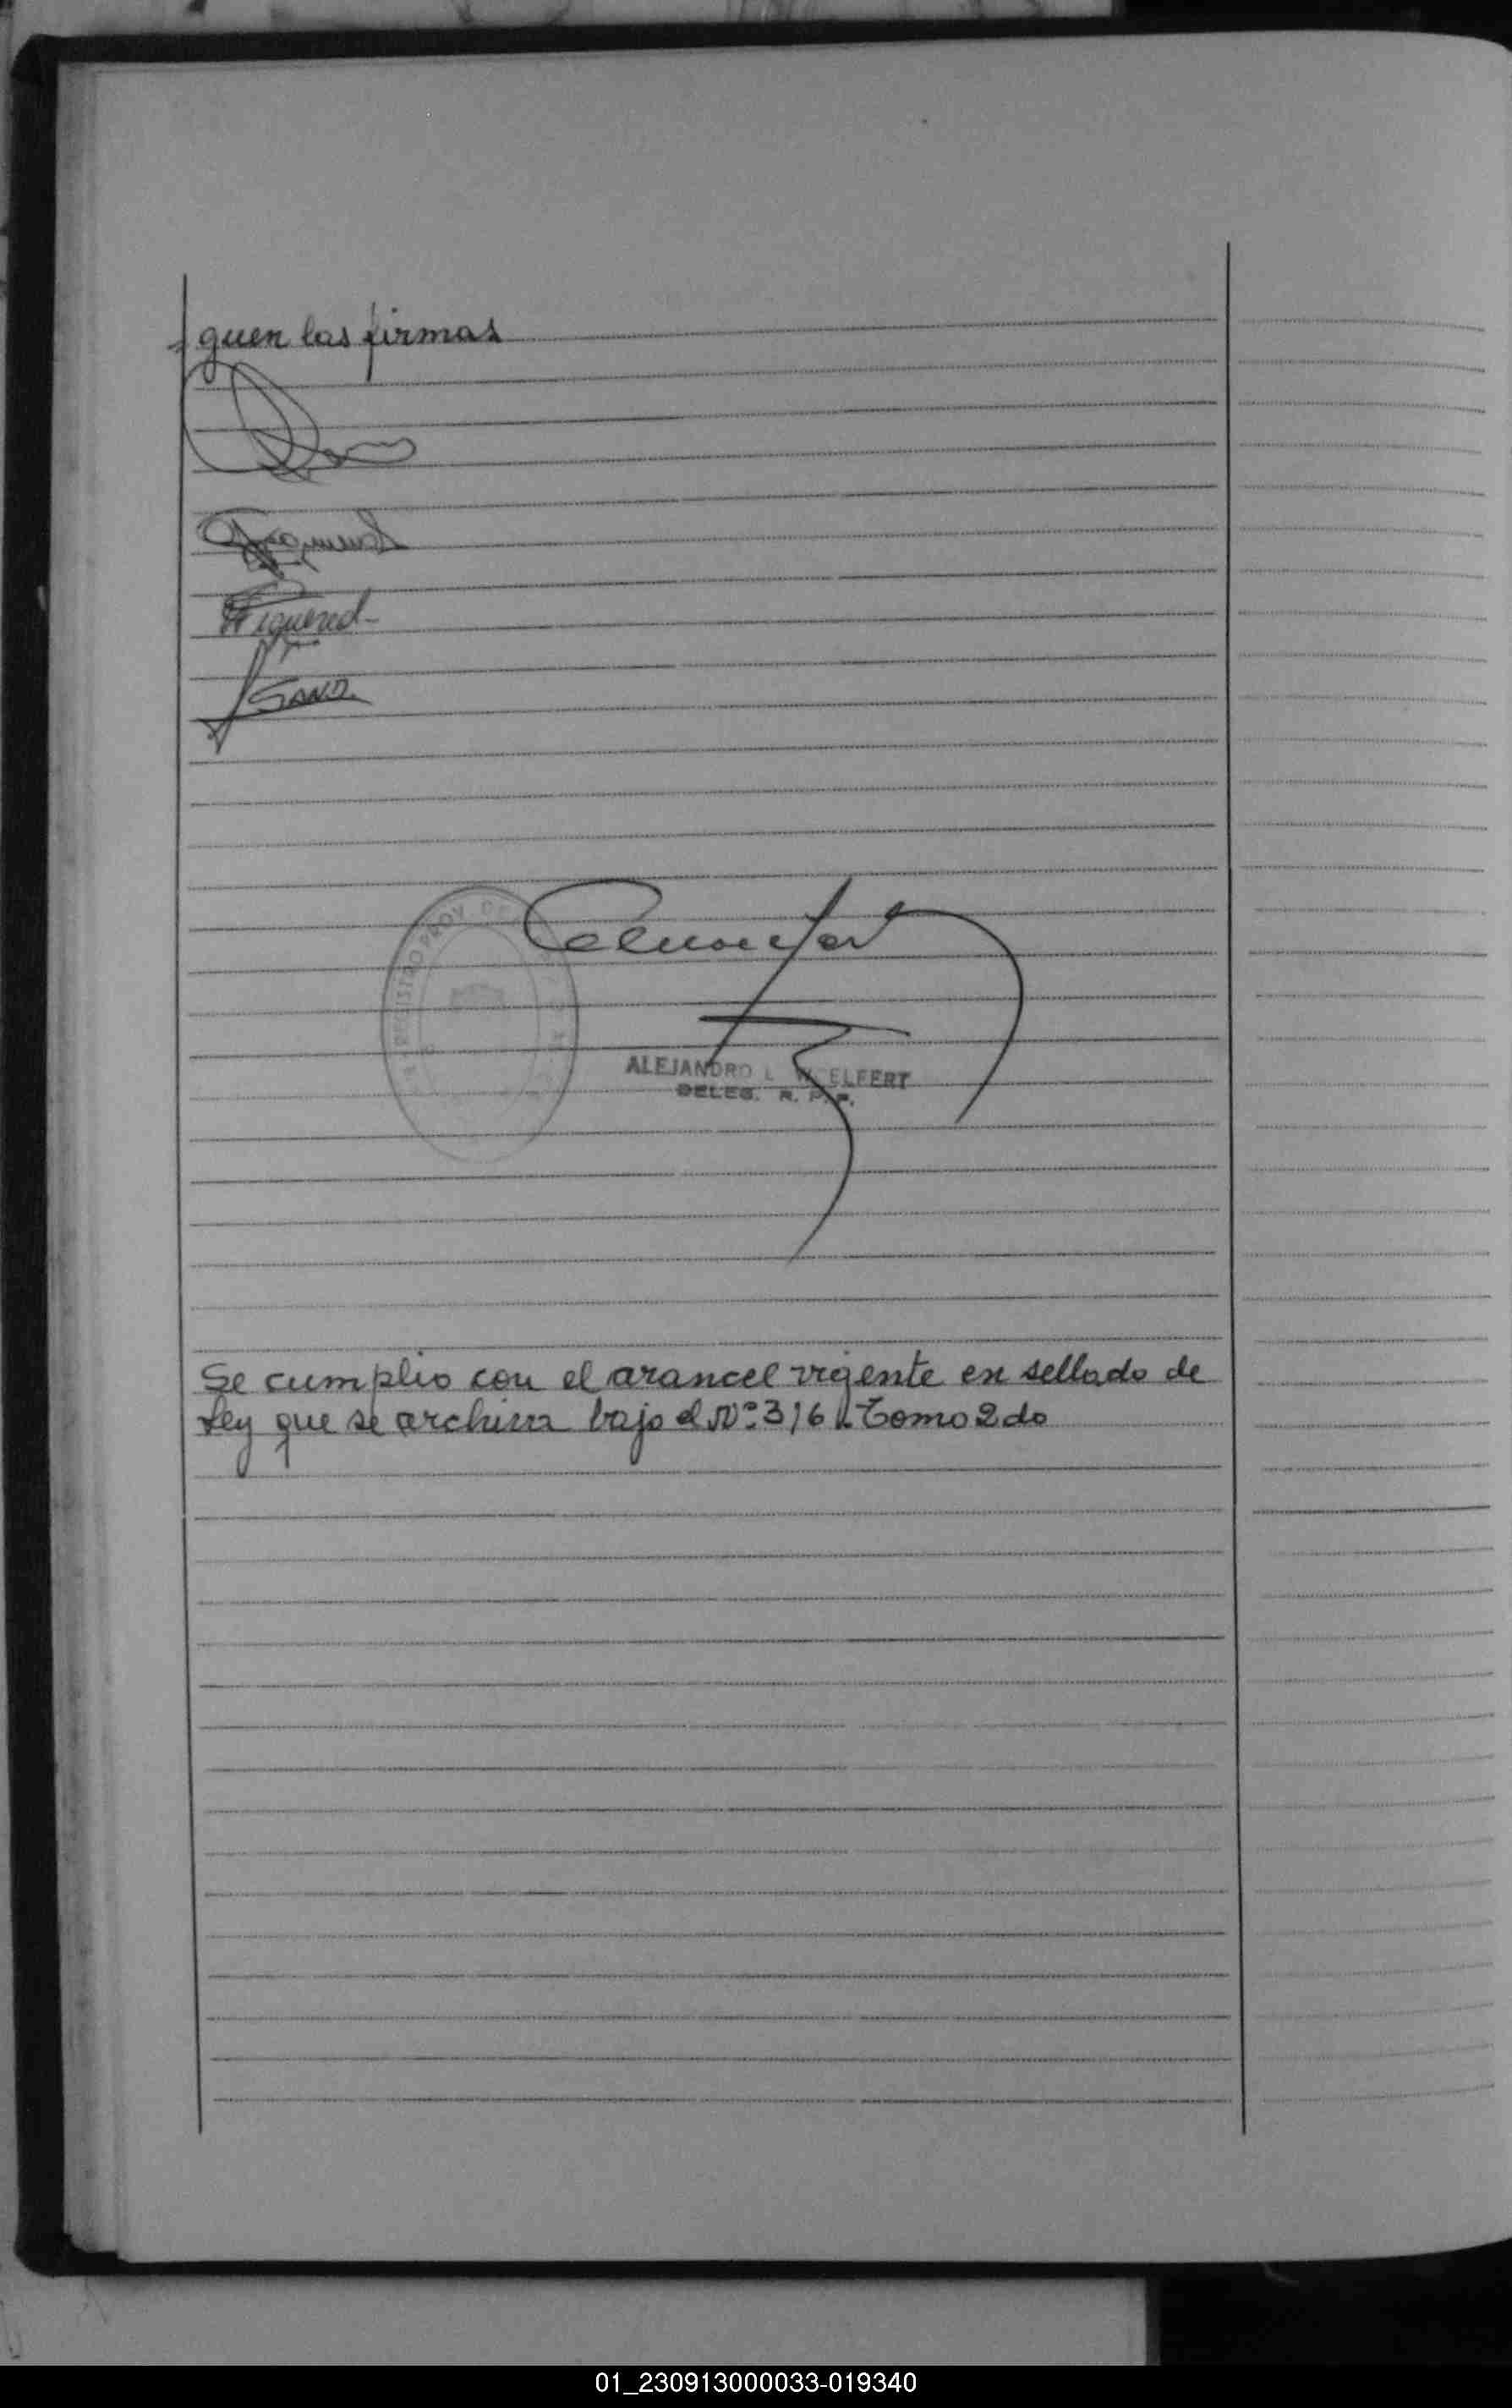 guen las firmas
Figuered
SANZ
REGISTRO PROV. DE
ALEJANDRO L. WELFERT
DELEG. R. P. P.
Se cumplio con el arancel vigente en sellado de
Ley que se archiva bajo el Nº 316 Tomo 2do
01_230913000033-019340